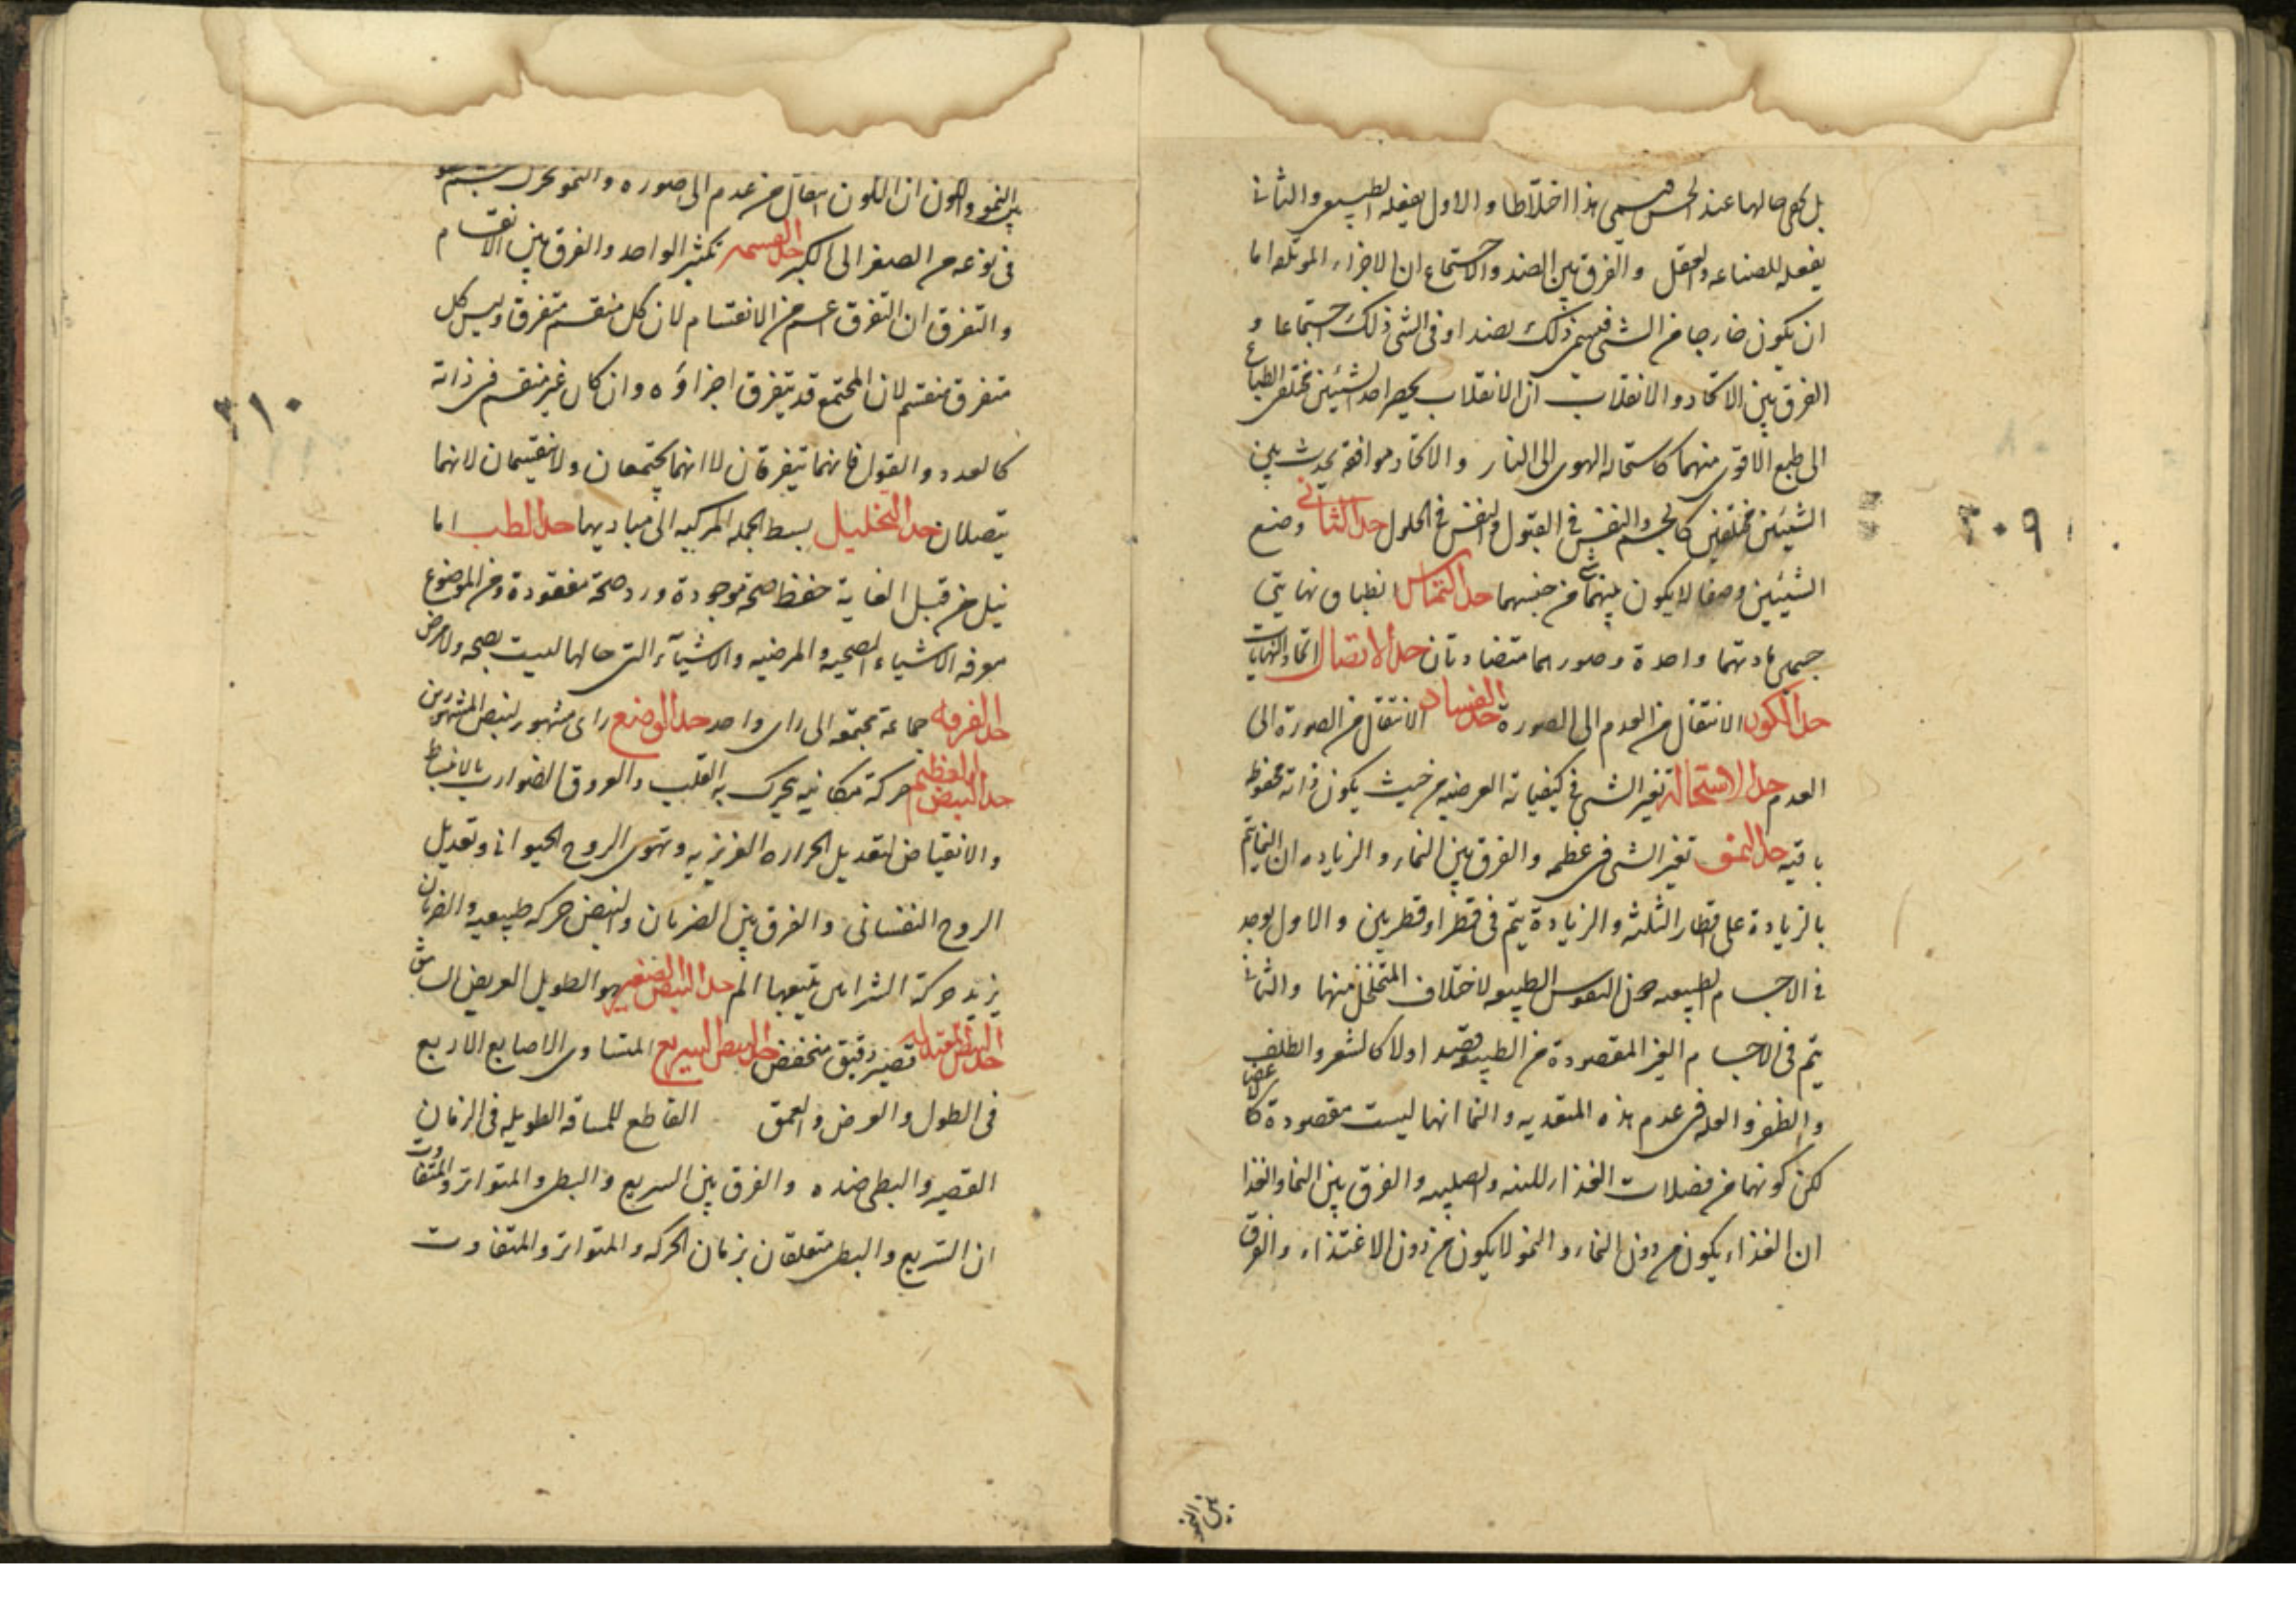 بل كهى حالهما عند الحس فيسمى هذا اختلاطا والاول يفعله الطبيعى والثانى
يفعله للصناعه والعقل والفرق بين الضد والاجتماع ان الاجزاء الموتلفه اما
ان يكون خارجا من الشى فيسمى ذلك نضدا او فى الشى ذلك اجتماعا و
الفرق بين الاتحاد والانقلاب ان الانقلاب يحصر احد الشيئين مختلفى الطباع
الى طبع الاقوى منهما كاستحاله الهوى الى النار والاتحاد موافقه يحدث بين
الشيئين مختلفين كالجسم والنفس فى القبول والنفس فى الحلول حد الثانى وضع
الشيئين وضعا لا يكون بينهما شى من جنسهما حد التماس انطباق نهايتى
جسمى مادتهما واحدة وصورهما متضادتان حد الاتصال اتحاد النهايات
حد الكون الانتقال من العدم الى الصورة حد الفساد الانتقال من الصورة الى
العدم حد الاستحالة تغير الشى فى كيفياته العرضيه من حيث يكون ذاته محفوظه
باقيه حد النمو تغير الشى فى عظمه والفرق بين النماء والزياده ان النما يتم
بالزيادة على اقطار الثلثه والزيادة يتم فى قطر او قطرين والاول يوجد
فى الاجسام الطبيعه النفوس الطبيعه لاختلاف المتخلخل منها والثانى
يتم فى الاجسام الغير المقصودة من الطبيعه قصدا اولا كالشعر والظلف
والظفر والعله فى عدم هذه المتغديه والنما انها ليست مقصودة كالاعضا
لكن كونها من فضلات الغذاء والفرق بين النما والغذا
ان الغذاء يكون من دون النماء والنمو لا يكون من دون الاغتذاء والفرق
بين النمو
٢٠٩
بين النمو والكون ان الكون انتقال من عدم الى صوره والنمو تحرك
فى نوعه من الصغر الى الكبر حد القسمه تكثير الواحد والفرق بين الانقسام
والتفرق ان التفرق اعم من الانقسام لان كل منقسم متفرق وليس كل
متفرق منقسم لان المجتمع قد يتفرق اجزاؤه وان كان غير منقسم فى ذاته
كالعدد والقول فانهما يتفرقان لا انهما يجتمعان ولا ينقسمان لانهما
يتصلان حد التحليل بسط الجمله المركبه الى مباديها حد الطب اما
نيل من قبل الغاية حفظ صحة موجودة ورد صحة مفقودة ومن الموضوع
معرفه الاشياء الصحيه والمرضيه والاشيآء التى حالها ليست بصحه ولا مرض
حد الفرقه جماعة مجتمعه الى راى واحد حد الوضع راى مشهور لبعض المشهورين
حد النبض العظيم حركة مكانيه يتحرك به القلب والعروق الضوارب بالانبساط
والانقباض لتعديل الحراره الغريزيه وتقوى الروح الحيوانى وتعديل
الروح النفسانى والفرق بين الضربان والنبض حركه طبيعيه والضربان
يزيد حركة الشراين يتبعها الم حد النبض الصغير هو الطويل العريض الشاهق
حد النبض المعتدل قصير دقيق منخفض حد النبض السريع المتساوى الاصابع الاربع
فى الطول والعرض والعمق القاطع للمسافه الطويله فى الزمان
القصير والبطى ضده والفرق بين السريع والبطى والمتواتر والمتفاوت
ان السريع والبطى متعلقان بزمان الحركه والمتواتر والمتفاوت
٢١٠